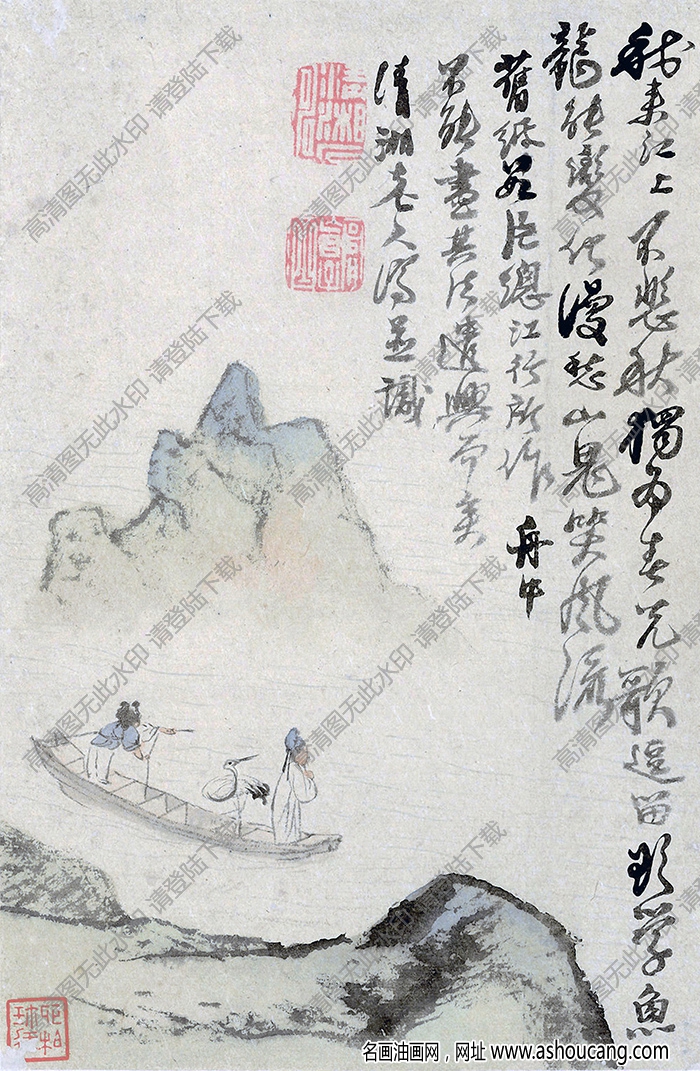 我来江上不悲秋獨為歌逗留學魚
龍能變化漫愁山鬼笑風流
舊紙數片總江行所作舟中
不能盡其法遣興而矣
清湘老人濟並識
高清图无此水印 请登陆下载
名画油画网，网址 www.ashoucang.com